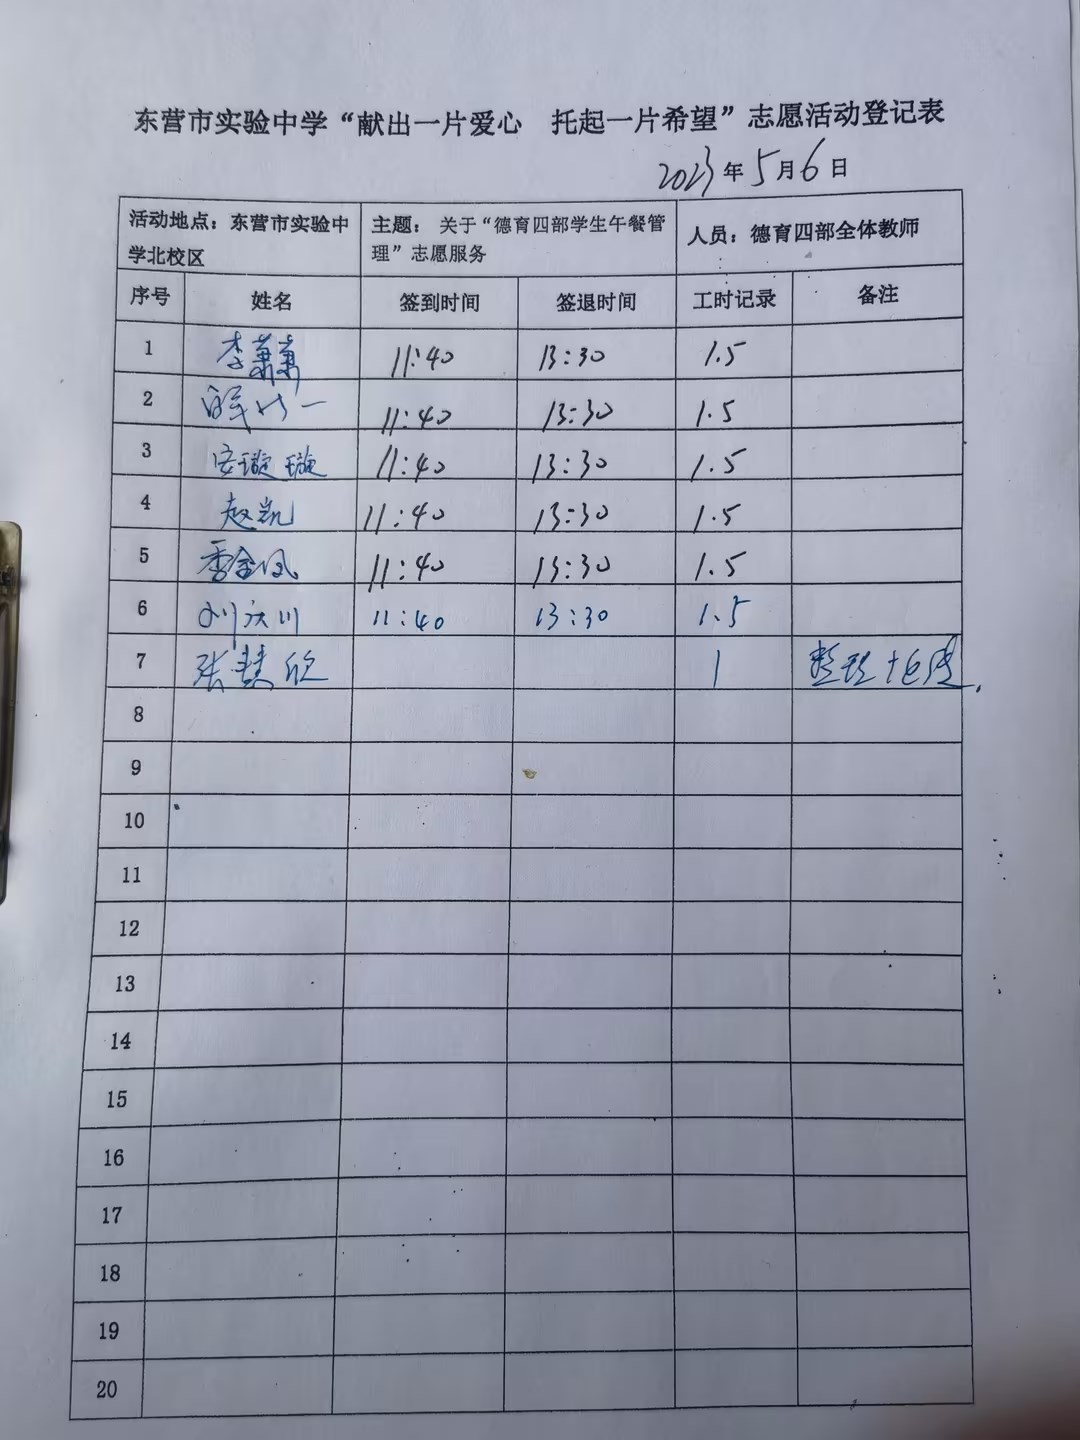 东营市实验中学“献出一片爱心 托起一片希望”志愿活动登记表
2023年5月6日
活动地点：东营市实验中学北校区 主题：关于“德育四部学生午餐管理”志愿服务 人员：德育四部全体教师
序号 姓名 签到时间 签退时间 工时记录 备注
1 李萧萧 11:40 13:30 1.5
2 11:40 13:30 1.5
3 安璇璇 11:40 13:30 1.5
4 赵凯 11:40 13:30 1.5
5 季金凤 11:40 13:30 1.5
6 刘庆川 11:40 13:30 1.5
7 张慧欣 1 整理
8
9
10
11
12
13
14
15
16
17
18
19
20